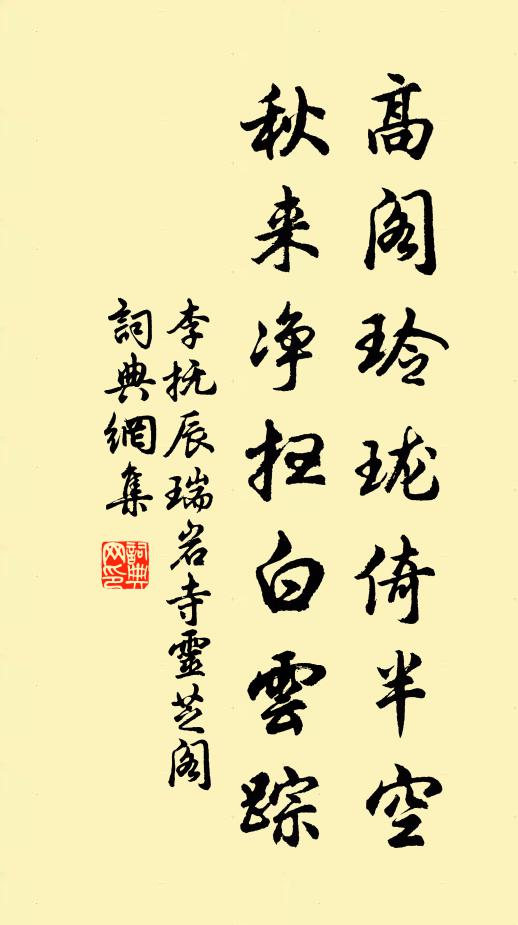 高阁玲珑倚半空
秋来净扫白雲踪
李抚辰瑞岩寺靈芝阁
詞典網集
詞典网印